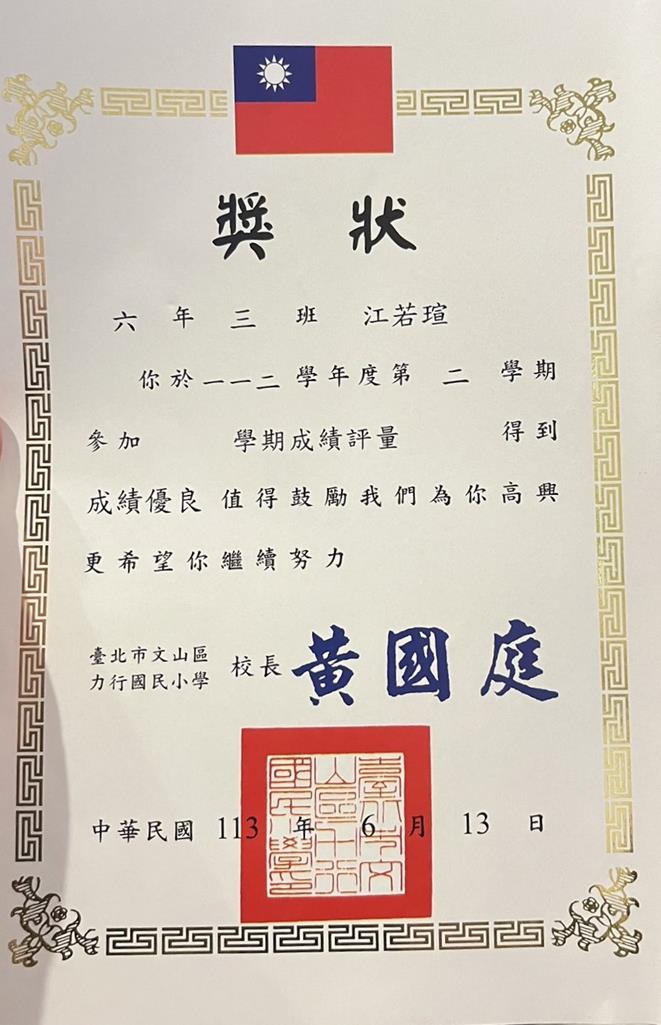 獎狀
六年三班 江若瑄
你於一一二學年度第二學期
參加 學期成績評量 得到
成績優良 值得鼓勵我們為你高興
更希望你繼續努力
臺北市文山區
力行國民小學 校長 黃國庭
中華民國 113 年 6 月 13 日
臺北市文山區力行國民小學印